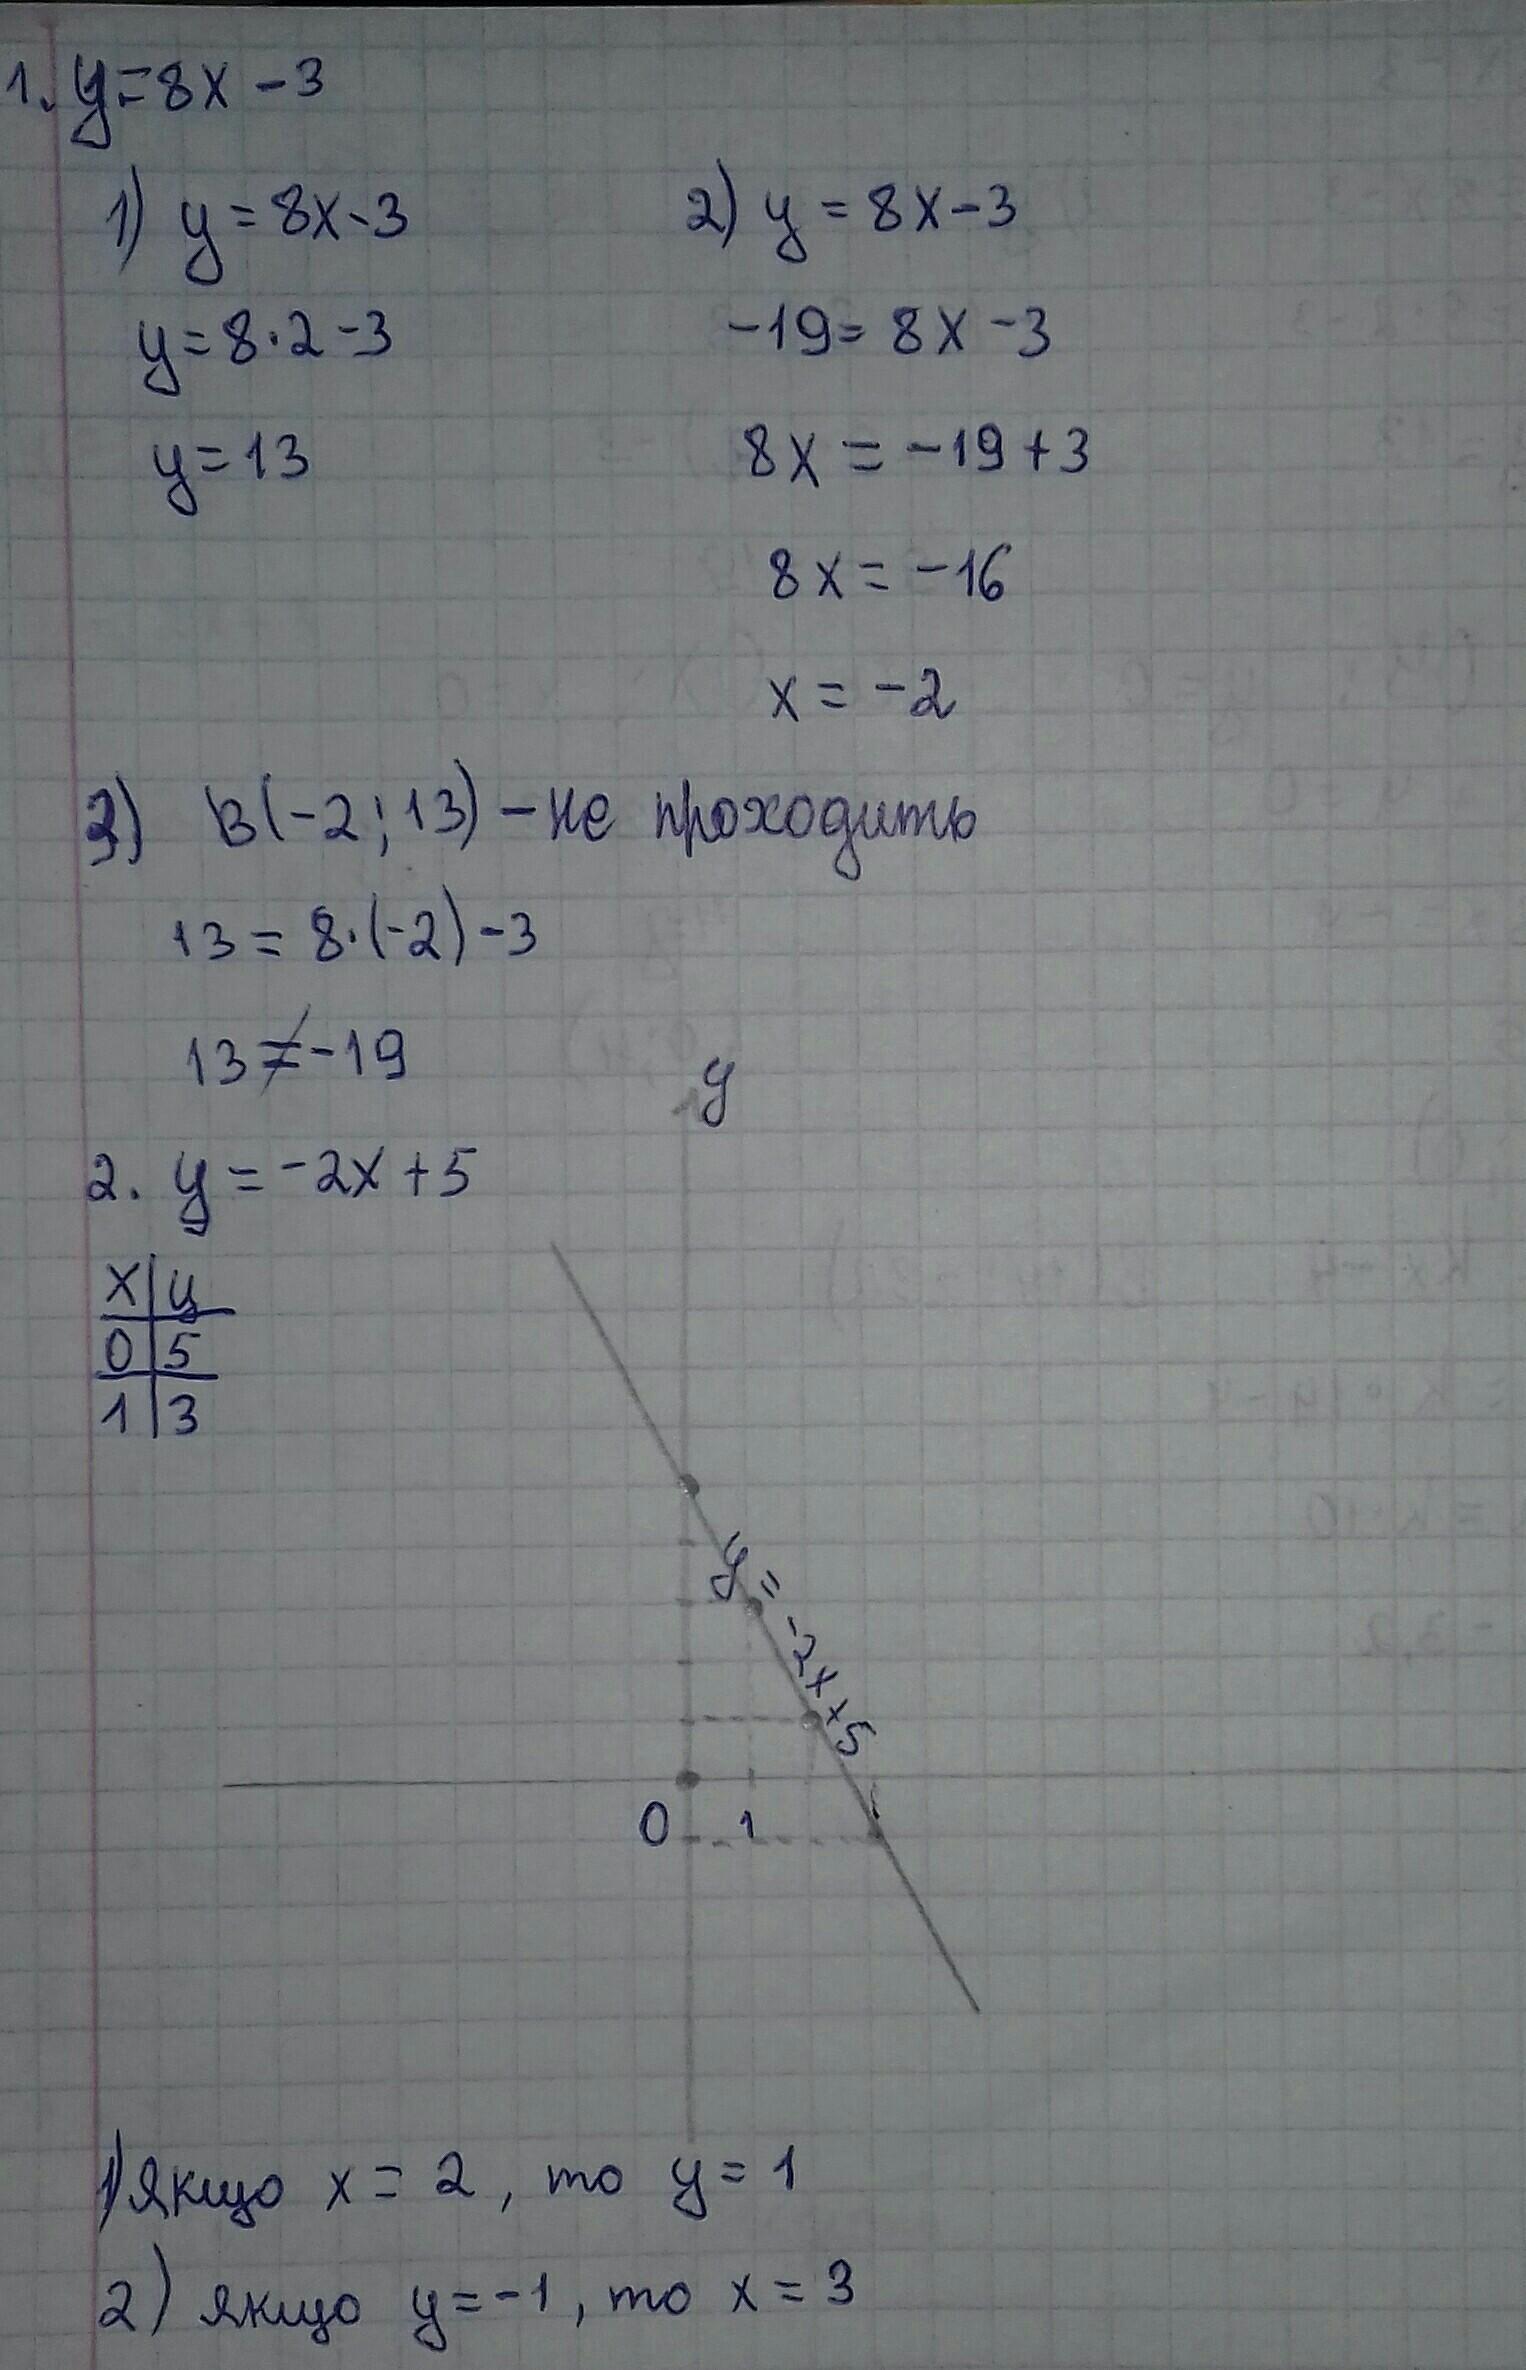 1. y=8x-3
1) y=8x-3
y=8·2-3
y=13
2) y=8x-3
-19=8x-3
8x=-19+3
8x=-16
x=-2
3) B(-2;13)-не проходить
13=8·(-2)-3
13≠-19
2. y=-2x+5
x|y
0|5
1|3
y
y=-2x+5
0 1
1) Якщо x=2, то y=1
2) якщо y=-1, то x=3